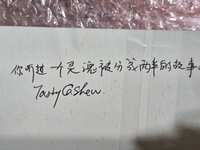 你听过一个灵魂被分成两半的故事吗
Tasty Cashew.